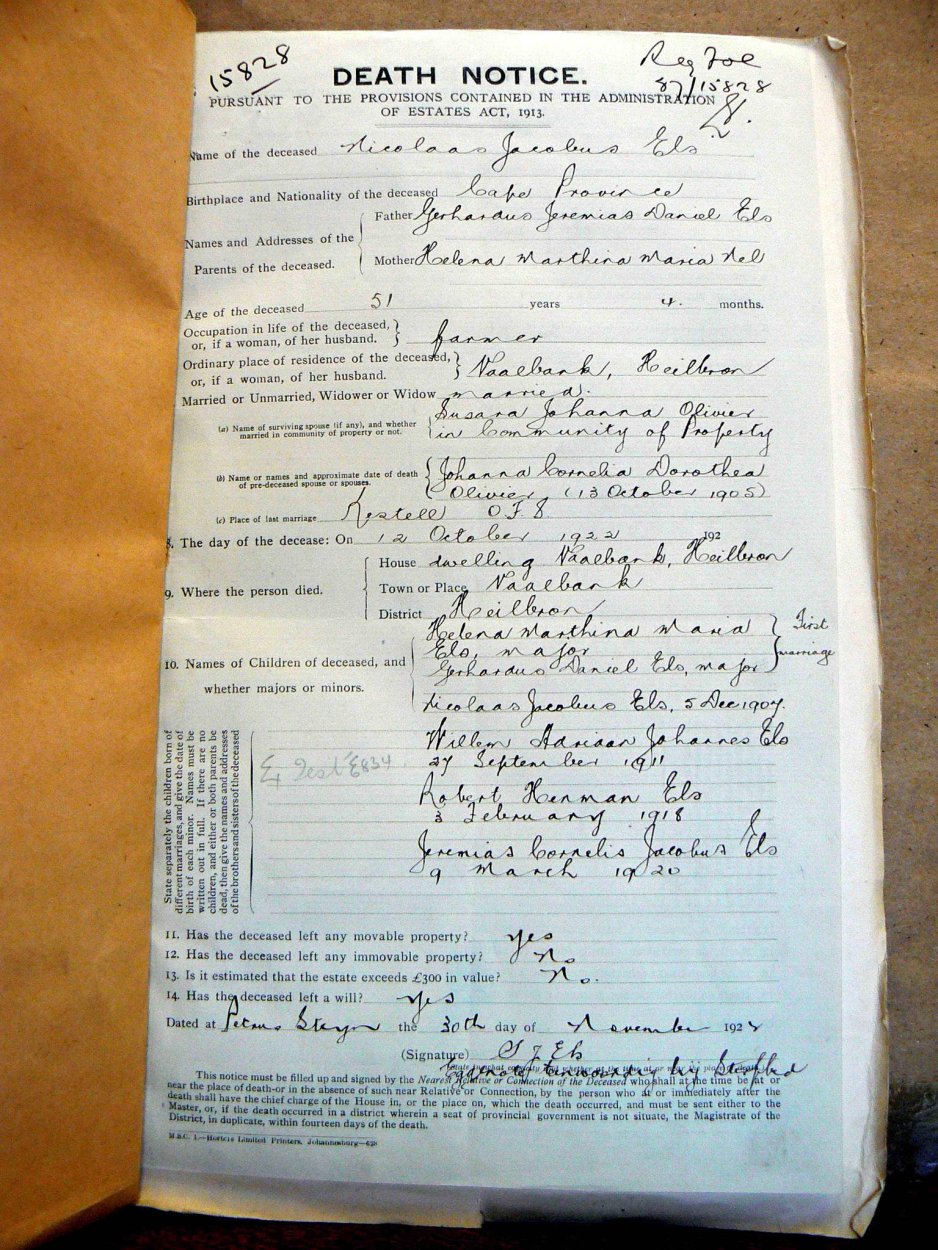 15828
DEATH NOTICE.
Reg Foe
87/15828
PURSUANT TO THE PROVISIONS CONTAINED IN THE ADMINISTRATION
OF ESTATES ACT, 1913.
Name of the deceased Nicolaas Jacobus Els
Birthplace and Nationality of the deceased Cape Province
Names and Addresses of the Parents of the deceased.
Father Gerhardus Jeremias Daniel Els
Mother Helena Marthina Maria Nel
Age of the deceased 51 years 4. months.
Occupation in life of the deceased,
or, if a woman, of her husband. farmer
Ordinary place of residence of the deceased,
or, if a woman, of her husband. Vaalbank, Heilbron
Married or Unmarried, Widower or Widow married.
(a) Name of surviving spouse (if any), and whether
married in community of property or not.
Susara Johanna Olivier
in Community of Property
(b) Name or names and approximate date of death
of pre-deceased spouse or spouses.
Johanna Cornelia Dorothea
Olivier (13 October 1905)
(c) Place of last marriage Kestell O.F.S.
8. The day of the decease: On 12 October 1922 192
9. Where the person died.
House dwelling Vaalbank, Heilbron
Town or Place Vaalbank
District Heilbron
10. Names of Children of deceased, and
whether majors or minors.
Helena Marthina Maria
Els, major
Gerhardus Daniel Els, major
First
marriage
Nicolaas Jacobus Els, 5 Dec 1907.
Willem Adriaan Johannes Els
27 September 1911
Robert Herman Els
3 February 1918
Jeremias Cornelis Jacobus Els
9 March 1920
State separately the children born of
different marriages, and give the date of
birth of each minor. Names must be
written out in full. If there are no
children, and either or both parents be
dead, then give the names and addresses
of the brothers and sisters of the deceased
Test 6834
11. Has the deceased left any movable property? yes
12. Has the deceased left any immovable property? No
13. Is it estimated that the estate exceeds £300 in value? No.
14. Has the deceased left a will? yes
Dated at Petrus Steyn the 30th day of November 1922
(Signature) S J Els
Eggenote tenwoordig bij Sterfbed
This notice must be filled up and signed by the Nearest Relative or Connection of the Deceased who shall at the time be at or
near the place of death-or in the absence of such near Relative or Connection, by the person who at or immediately after the
death shall have the chief charge of the House in, or the place on, which the death occurred, and must be sent either to the
Master, or, if the death occurred in a district wherein a seat of provincial government is not situate, the Magistrate of the
District, in duplicate, within fourteen days of the death.
M.B.C. 1.—Hortors Limited Printers, Johannesburg—628